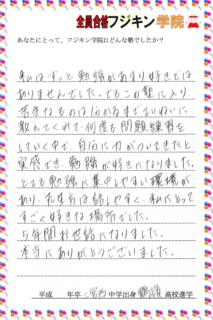 全員合格フジキン学院
あなたにとって、フジキン学院はどんな塾でしたか？
私はずっと勉強があまり好きでは
ありませんでした。でもこの塾に入り、
苦手なものは分かるまでていねいに
教えてくれて、何度も問題練習を
していく中で、自分に力がついてきたと
実感でき、勉強が好きになりました。
とても勉強に集中しやすい環境が
あり、先生も話しやすく、私にとって
すごく好きな場所でした。
5年間お世話になりました。
本当にありがとうございました。
平成 年卒 二宮西 中学出身 鶴嶺 高校進学